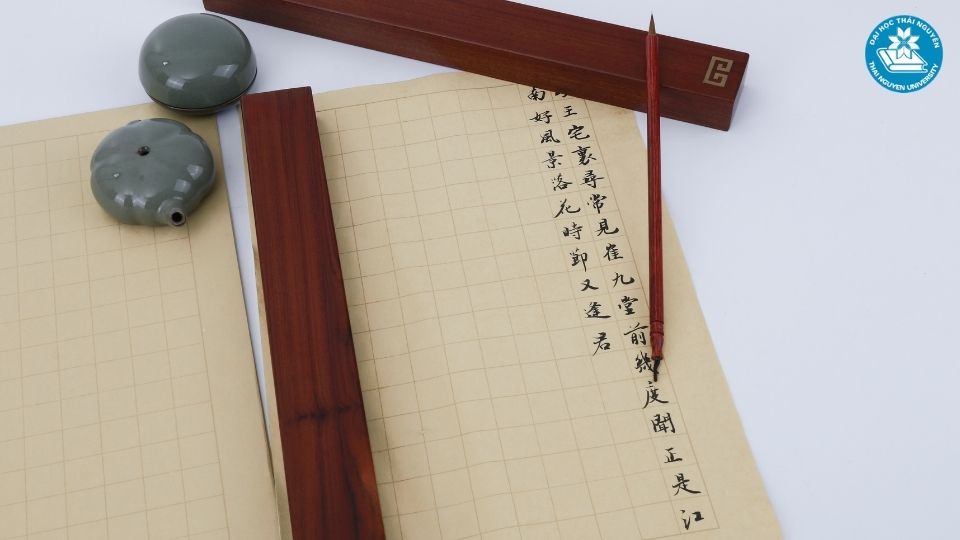 王宅裏尋常見崔九堂前幾度聞正是江
南好風景落花時節又逢君
ĐẠI HỌC THÁI NGUYÊN
THAI NGUYEN UNIVERSITY